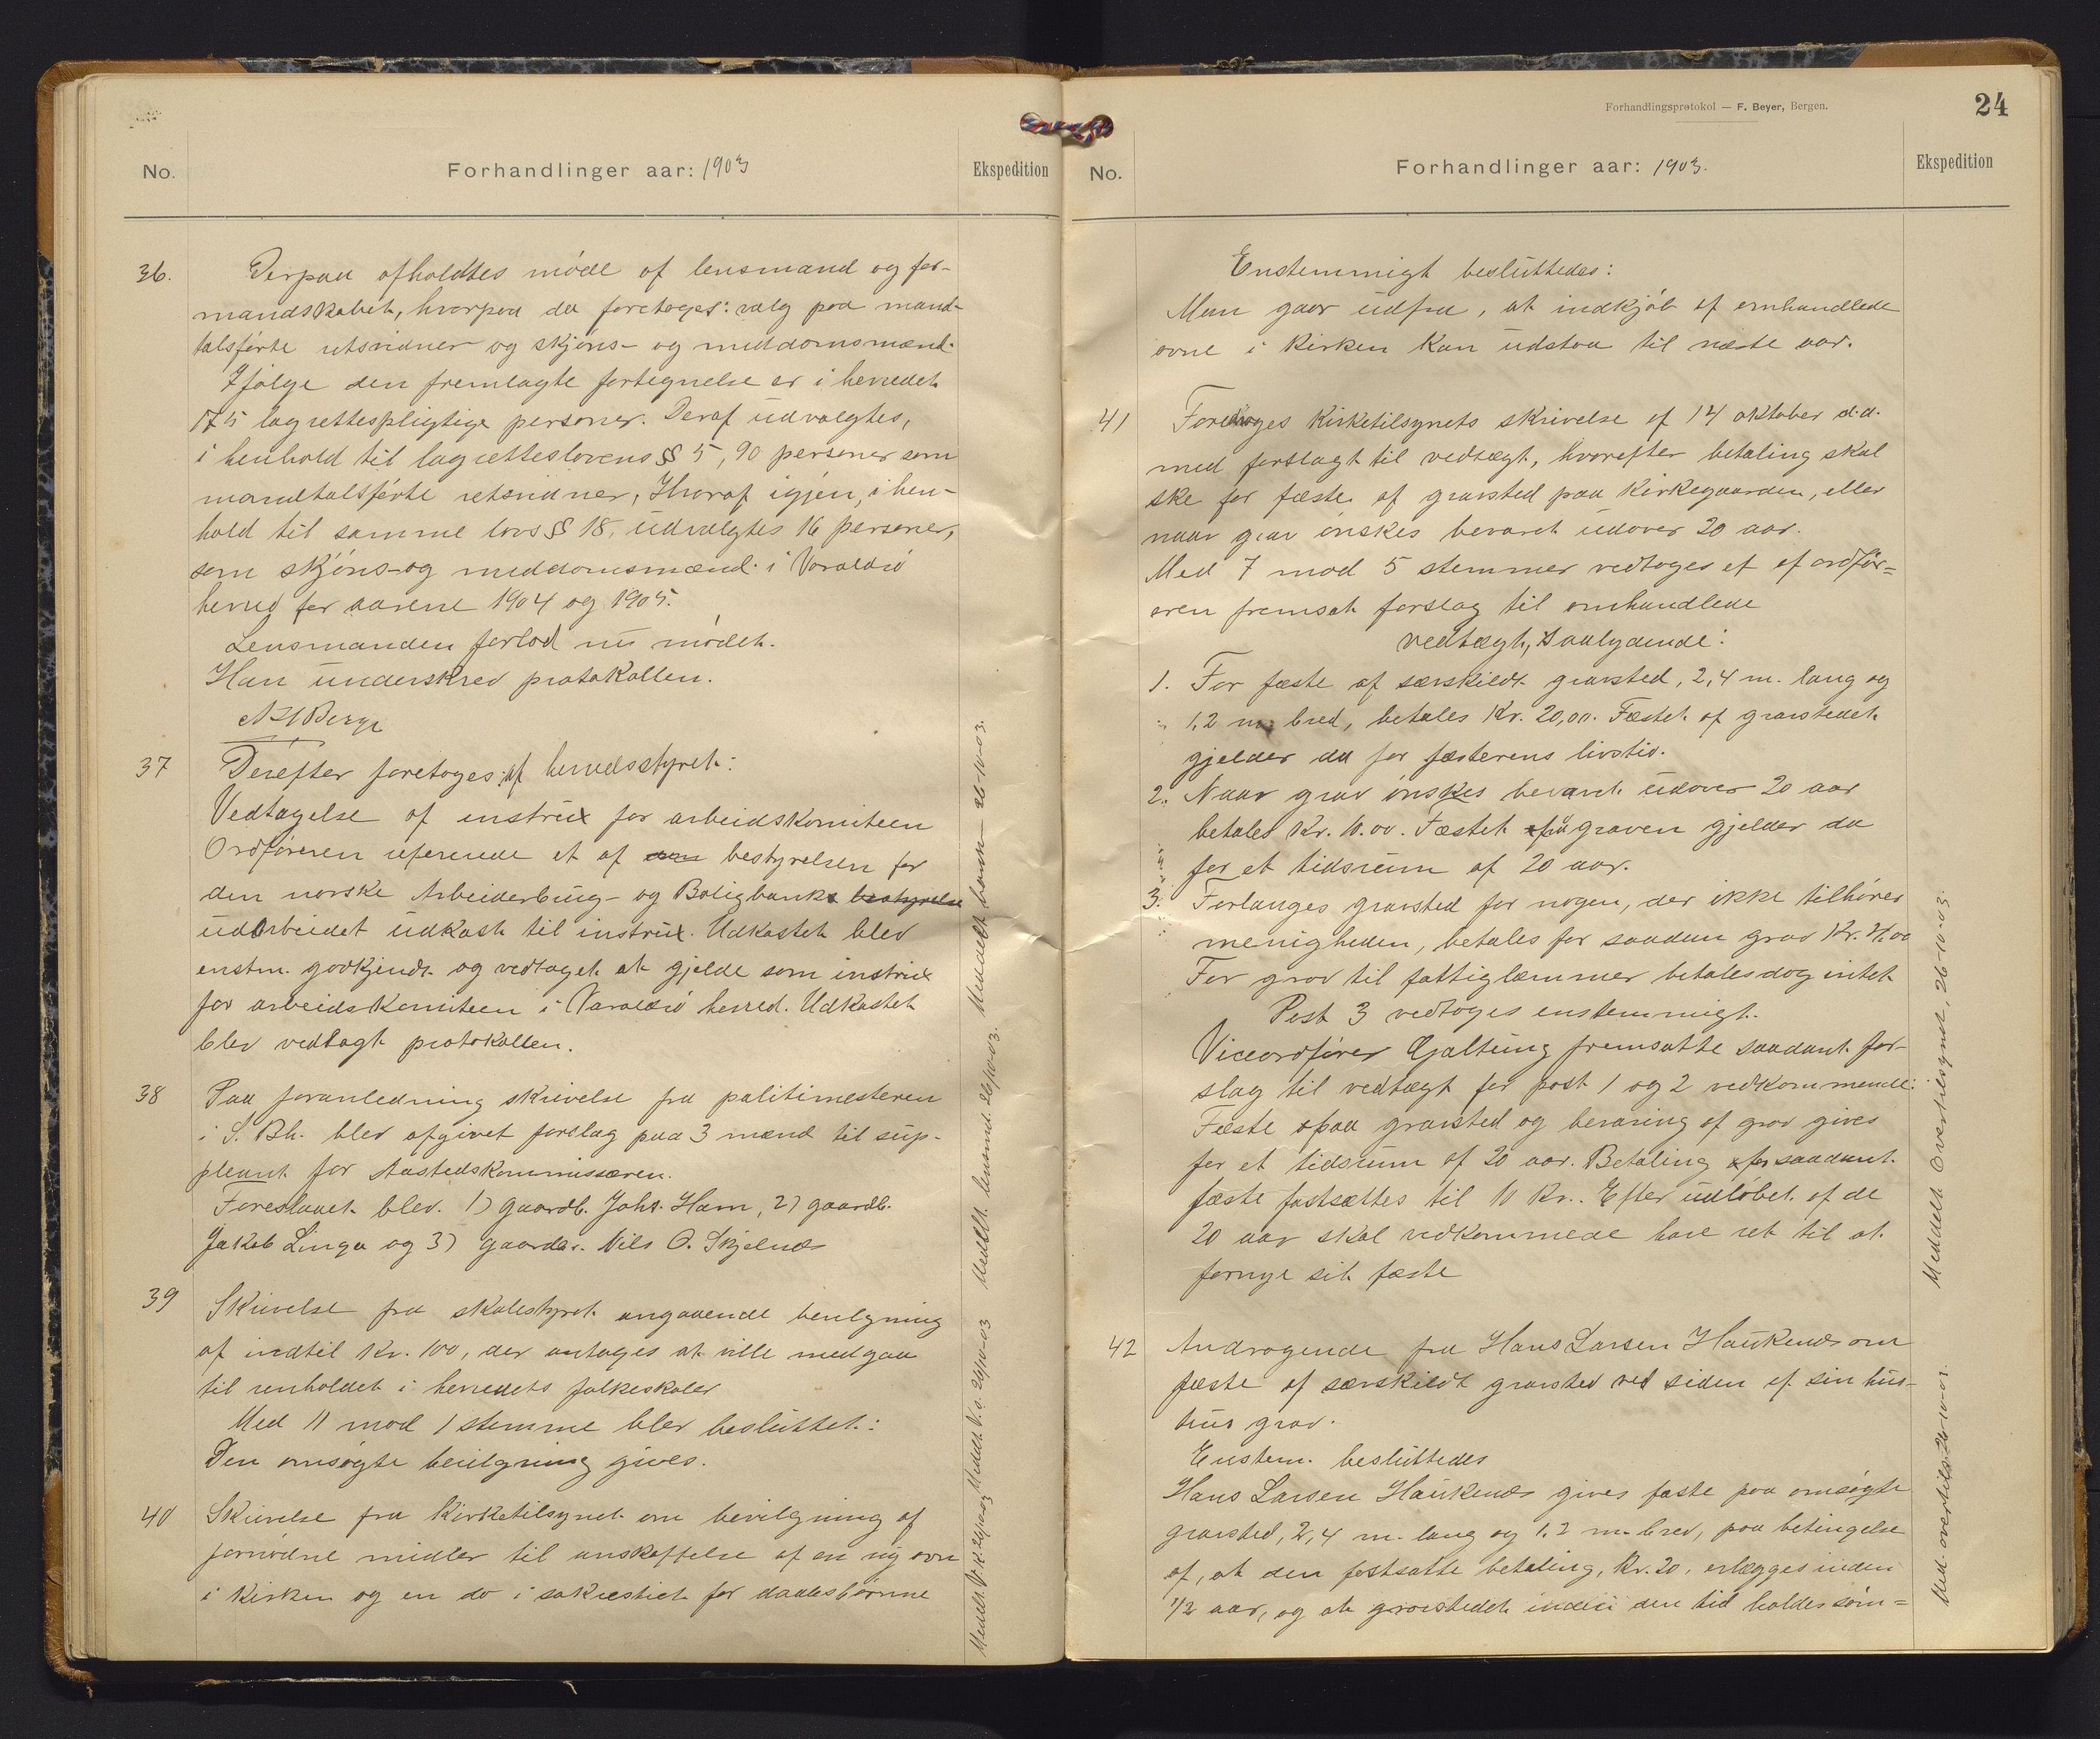 No.
Forhandlinger aar: 1903
Ekspedition
36.
Derpaa afholdtes møde af lensmand og for-
mandskabet, hvorpaa da foretoges: valg paa mand-
talsførte retsvidner og skjøns- og meddomsmænd.
Ifølge den fremlagte fortegnelse er i herredet
175 lagrettespligtige personer. Deraf udvalgtes,
i henhold til lagretteslovens §§ 5, 90 personer som
mandtalsførte retsvidner, Hvoraf igjen, i hen-
hold til samme lovs §§ 18, udvalgtes 16 personer,
som skjøns- og meddomsmænd i Varaldsø
herred for aarene 1904 og 1905.
Lensmanden forlod nu mødet.
Han underskrev protokollen.
Berge
37
Derefter foretoges: af herredsstyret:
Vedtagelse af instrux for arbeidskomiteen
Ordføreren refererede et af bestyrelsen for
den norske Arbeiderbrug- og Boligbanks bestyrelse
udarbeidet udkast til instrux. Udkastet blev
enstm. godkjendt og vedtaget at gjelde som instrux
for arbeidskomiteen i Varaldsø herred. Udkastet
blev vedlagt protokollen.
38
Paa foranledning skrivelse fra politimesteren
i S. Bh. blev afgivet forslag paa 3 mænd til sup-
pleant for Aastedskommissæren.
Foreslaaet blev. 1) gaardb. Johs. Ham, 2) gaardb.
Jakob Linga og 3) gaardbr. Nils O. Skjelnæs
39
Skrivelse fra skolestyret angaaende bevilgning
af indtil Kr. 100, der antages at ville medgaa
til renholdet i herredets folkeskoler
Med 11 mod 1 stemme blev besluttet:
Den omsøgte bevilgning gives.
40
Skrivelse fra Kirketilsynet om bevilgning af
fornødne midler til anskaffelse af en ny ovn
i Kirken og en do i sakristiet for daabsbørnene
Meddelt banken 26-10-03.
Meddelt. lensmd. 26/10-03.
Meddelt. 26/10-03
Meddelt. 26/10-03
Forhandlingsprotokol — F. Beyer, Bergen.
24
No.
Forhandlinger aar: 1903.
Ekspedition
Enstemmigt besluttedes:
Man gaar udfra, at indkjøb af omhandlede
ovne i Kirken Kan udstaa til næste aar.
41
Foretoges Kirketilsynets skrivelse af 14 oktober d.a.
med forslagt til vedtægt, hvorefter betaling skal
ske for fæste af gravsted paa Kirkegaarden, eller
naar grav ønskes bevaret udover 20 aar.
Med 7 mod 5 stemmer vedtoges et af ordfør=
eren fremsat forslag til omhandlede
vedtægt, saalydende:
1. For fæste af særskildt gravsted, 2,4 m. lang og
1,2 m. bred, betales Kr. 20,00. Fæstet af gravstedet
gjelder da for fæsterens livstid.
2. Naar grav ønskes bevaret udover 20 aar
betales Kr. 10.00. Fæstet paa graven gjelder da
for et tidsrum af 20 aar.
3. Forlanges gravsted for nogen, der ikke tilhører
menigheden, betales for saadan grav Kr. 4.00
For grav til fattiglæmmer betales dog intet
Post 3 vedtoges enstemmigt.
Viceordfører Gjaltung fremsatte saadant for-
slag til vedtægt for post 1 og 2 vedkommende:
Fæste paa gravsted og bevaring af grav gives
for et tidsrum af 20 aar. Betaling for saadant
fæste fastsættes til 10 Kr. Efter udløbet af de
20 aar skal vedkommede have ret til at
fornye sit fæste
42
Andragende fra Hans Larsen Haukenæs om
fæste af særskildt gravsted ved siden af sin hus-
trus grav.
Enstem. besluttedes
Hans Larsen Haukenæs gives fæste paa omsøgte
gravsted, 2,4 m. lang og 1.2 m. bred, paa betingelse
af, at den fastsatte betaling, Kr. 20, erlægges inden
1/2 aar, og at gravstedet inden den tid holdes søm=
Meddelt Overtilsynet, 26-10-03.
Med. overtils. 26-10-03.